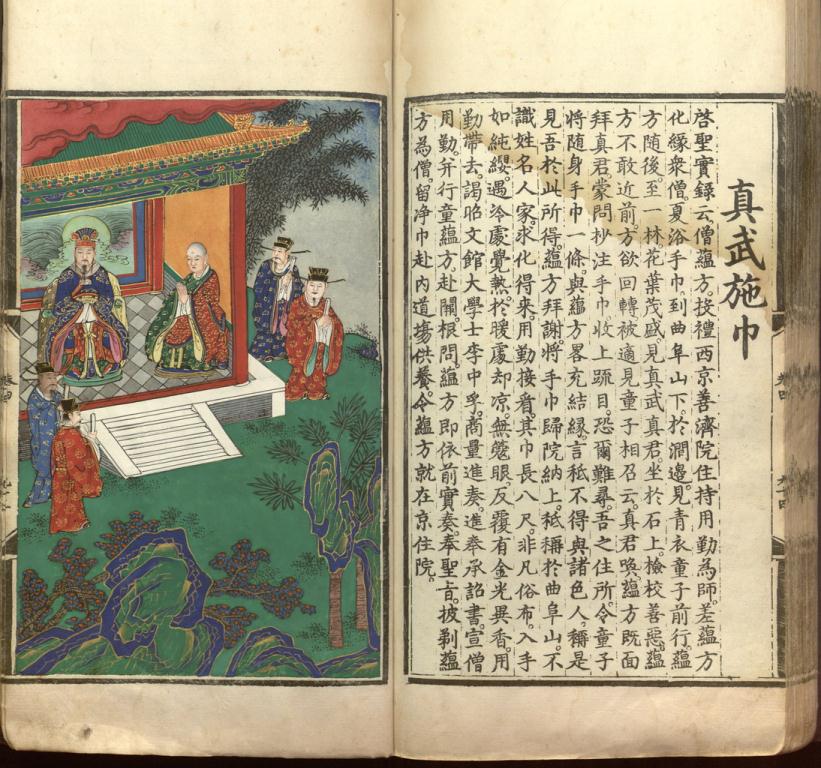 真武施巾
啓聖實錄云。僧蘊方。投禮西京善濟院住持用勤為師。差蘊方
化緣衆僧。夏浴手巾。到曲阜山下。於澗邊。見青衣童子前行。蘊
方隨後。至一林花葉茂盛。見真武真君。坐於石上。檢校善惡。蘊
方不敢近前。方欲回轉。被適見童子相召云。真君喚。蘊方既面
拜真君。蒙問抄注手巾。收上䟽目。恐爾難尋。吾之住所。令童子
將隨身手巾一條。與蘊方畧充結緣。言秪不得與諸色人。稱是
見吾於此所得。蘊方拜謝。將手巾歸院納上。秪稱於曲阜山。不
識姓名人家。求化得來。用勤接看。其巾長八尺。非凡俗布。入手
如純纓。遇冷處覺熱。於暖處却凉。無眼。反覆有金光異香。用
勤帶去。謁昭文館大學士李中孚。商量進奏。進奉承詔書。宣僧
用勤。并行童蘊方。赴闕根問。蘊方即依前實奏。奉聖旨。披剃蘊
方為僧。留净巾赴内道塲供養。令蘊方就在京住院。
卷四
九十四
卷四